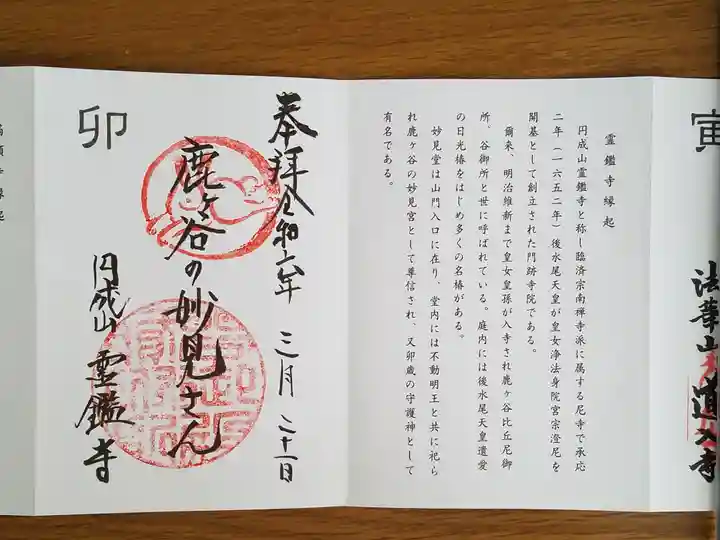 寅
法華山
道入寺
霊鑑寺縁起
円成山霊鑑寺と称し臨済宗南禅寺派に属する尼寺で承応
二年（一六五二年）後水尾天皇が皇女浄法身院宮宗澄尼を
開基として創立された門跡寺院である。
爾来、明治維新まで皇女皇孫が入寺され鹿ヶ谷比丘尼御
所、谷御所と世に呼ばれている。庭内には後水尾天皇遺愛
の日光椿をはじめ多くの名椿がある。
妙見堂は山門入口に在り、堂内には不動明王と共に祀ら
れ鹿ヶ谷の妙見宮として尊信され、又卯歳の守護神として
有名である。
奉拝
令和六年
三月
二十一日
鹿ヶ谷の妙見さん
円成山
霊鑑寺
卯